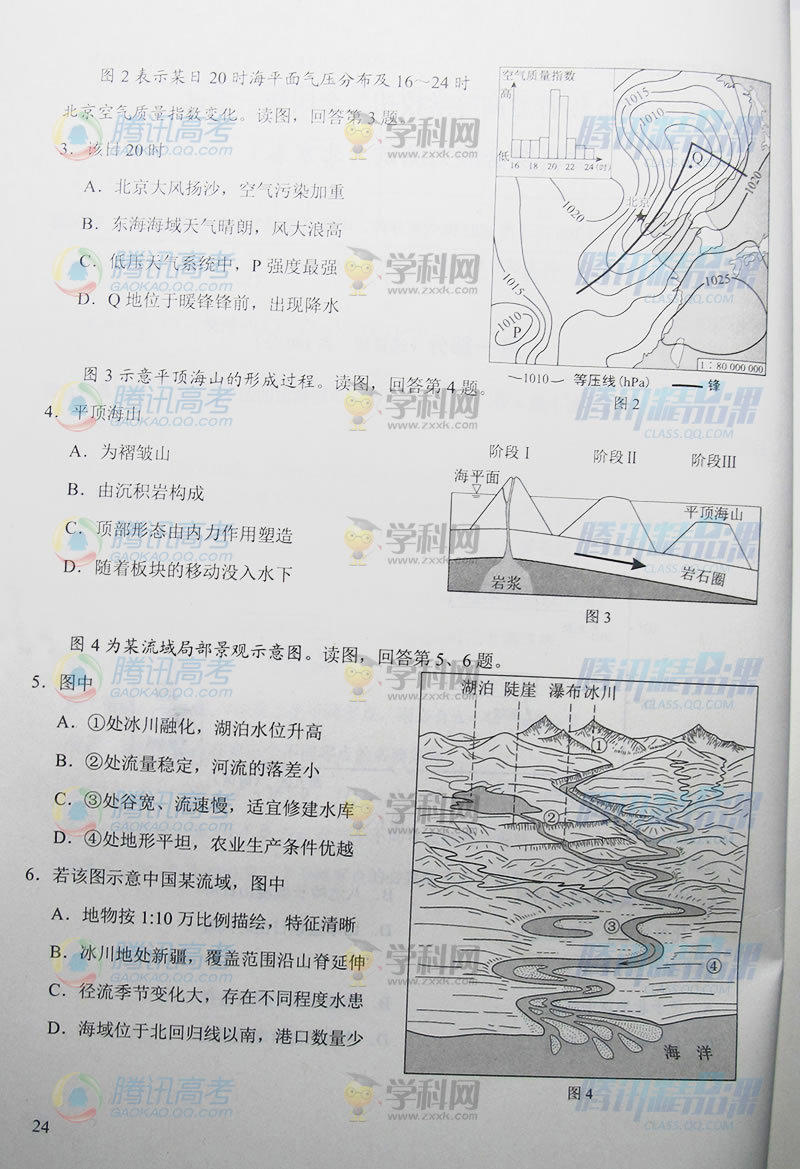 图 2 表示某日 20 时海平面气压分布及 16～24 时
北京空气质量指数变化。读图，回答第 3 题。
3．该日 20 时
A．北京大风扬沙，空气污染加重
B．东海海域天气晴朗，风大浪高
C．低压天气系统中，P 强度最强
D．Q 地位于暖锋锋前，出现降水
空气质量指数
高
低
16 18 20 22 24(时)
1015
1010
Q
北京
1020
1020
1015
1010
P
1025
1∶80 000 000
—1010— 等压线(hPa) —— 锋
图 2
图 3 示意平顶海山的形成过程。读图，回答第 4 题。
4．平顶海山
A．为褶皱山
B．由沉积岩构成
C．顶部形态由内力作用塑造
D．随着板块的移动没入水下
阶段Ⅰ 阶段Ⅱ 阶段Ⅲ
海平面
平顶海山
岩浆
岩石圈
图 3
图 4 为某流域局部景观示意图。读图，回答第 5、6 题。
5．图中
A．①处冰川融化，湖泊水位升高
B．②处流量稳定，河流的落差小
C．③处谷宽、流速慢，适宜修建水库
D．④处地形平坦，农业生产条件优越
6．若该图示意中国某流域，图中
A．地物按 1:10 万比例描绘，特征清晰
B．冰川地处新疆，覆盖范围沿山脊延伸
C．径流季节变化大，存在不同程度水患
D．海域位于北回归线以南，港口数量少
湖泊 陡崖 瀑布 冰川
①
②
③
④
海 洋
图 4
24
腾讯高考
GAOKAO.QQ.COM
学科网
www.zxxk.com
腾讯精品课
CLASS.QQ.COM